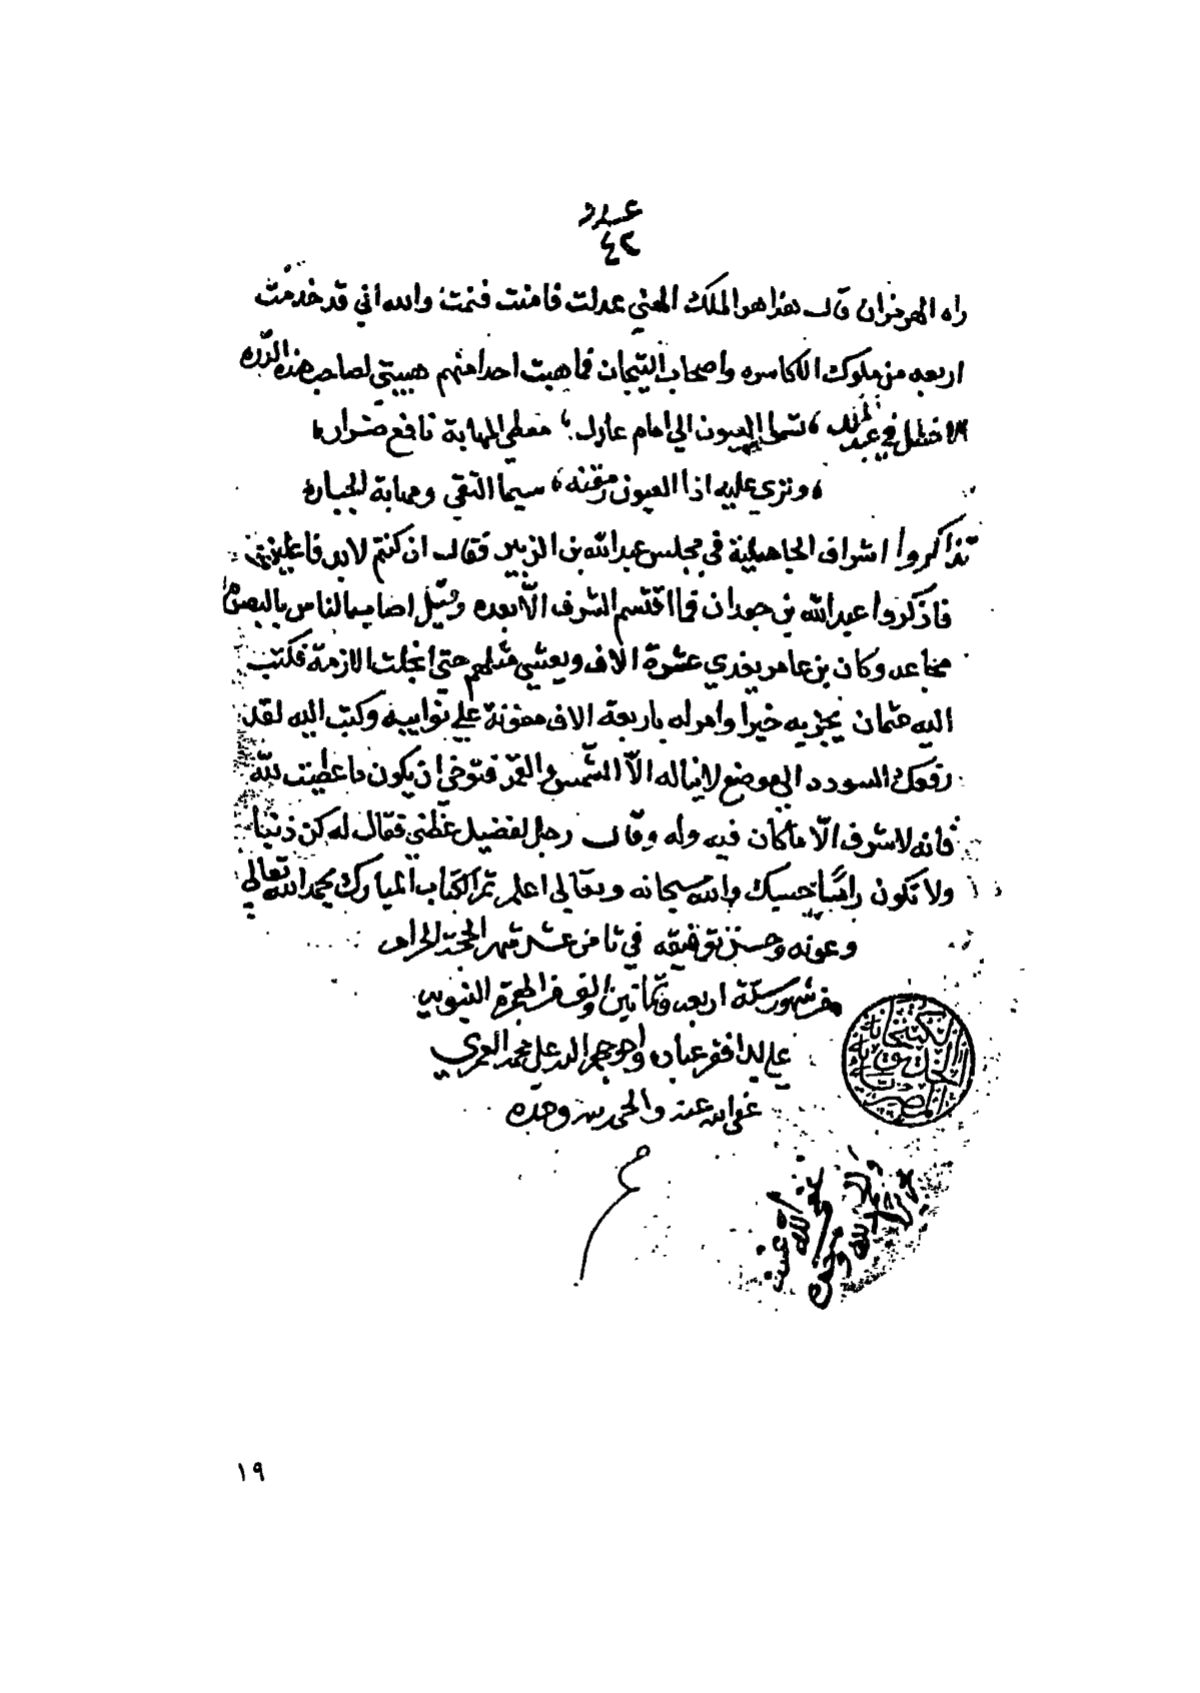 عدد
٤٢
راه الهرمزان قال هذا هو الملك الهني عدلت فامنت فنمت والله اني قد خدمت
اربعه من ملوك الاكاسره واصحاب التيجان فما هبت احدا منهم هيبتي لصاحب هذه الدره
الاخطل في عبد الملك تسموا العيون الى امام عادل معطي المهابة نافع ضرار
وترى عليه اذا العيون رمقنه سيما التقى وهيبة الجبار
تذاكروا اشراف الجاهلية في مجلس عبد الله بن الزبير فقال ان كنتم لابد فاعلين
فاذكروا عبد الله بن جدعان فما اقتسم الشرف الا بعده وقيل اصاب الناس بالبصرة
مجاعه وكان بن عامر يغدي عشرة الاف ويعشي مثلهم حتى انجلت الازمة فكتب
اليه عثمان يجزيه خيرا وامر له باربعة الاف معونة على نوايبه وكتب اليه لقد
رفعك السودد الى موضع لا يناله الا الشمس والقمر فتوخى ان يكون ما عطيت لله
فانه لا شرف الا ما كان فيه وله وقال رجل لفضيل عظني فقال له كن ذنبا
ولا تكون راسا حسبك والله سبحانه وتعالى اعلم تم الكتاب المبارك بحمد الله تعالى
وعونه وحسن توفيقه في ثامن عشر شهر الحجة الحرام
من شهور سنة اربعه وثمانين والف من الهجرة النبويه
على يد افقر عباده واحوجهم اليه علي محمد العمري
عفى الله عنه والحمد لله وحده
م
الكتبخانة
المصرية
١٩